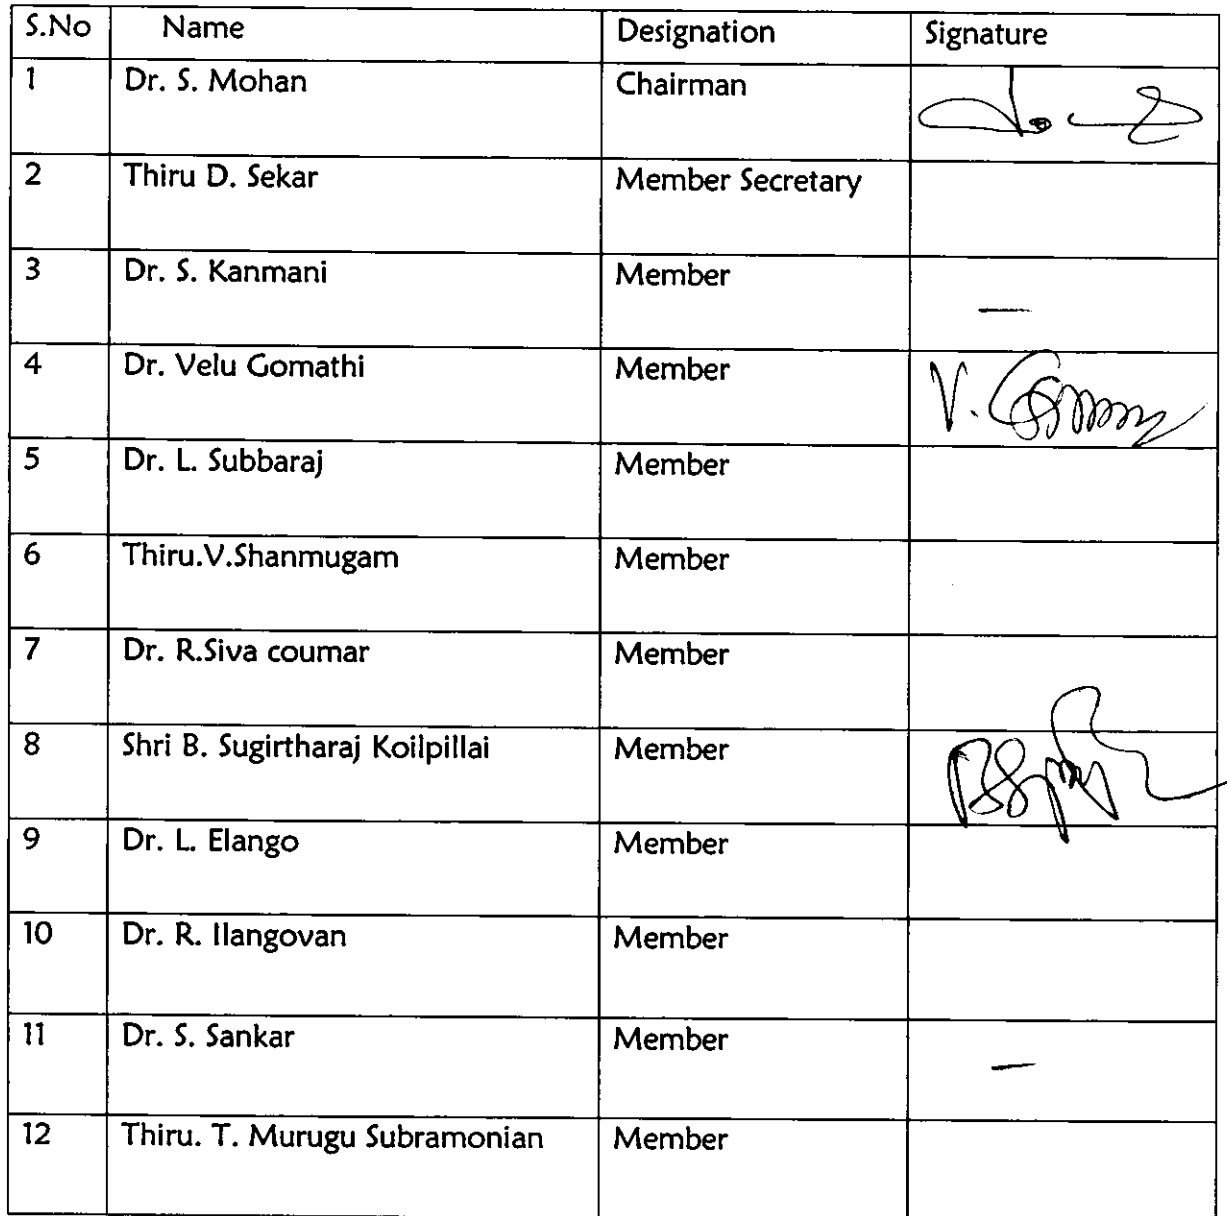 S.No Name Designation Signature
1 Dr. S. Mohan Chairman
2 Thiru D. Sekar Member Secretary
3 Dr. S. Kanmani Member —
4 Dr. Velu Gomathi Member V.
5 Dr. L. Subbaraj Member
6 Thiru.V.Shanmugam Member
7 Dr. R.Siva coumar Member
8 Shri B. Sugirtharaj Koilpillai Member
9 Dr. L. Elango Member
10 Dr. R. Ilangovan Member
11 Dr. S. Sankar Member —
12 Thiru. T. Murugu Subramonian Member